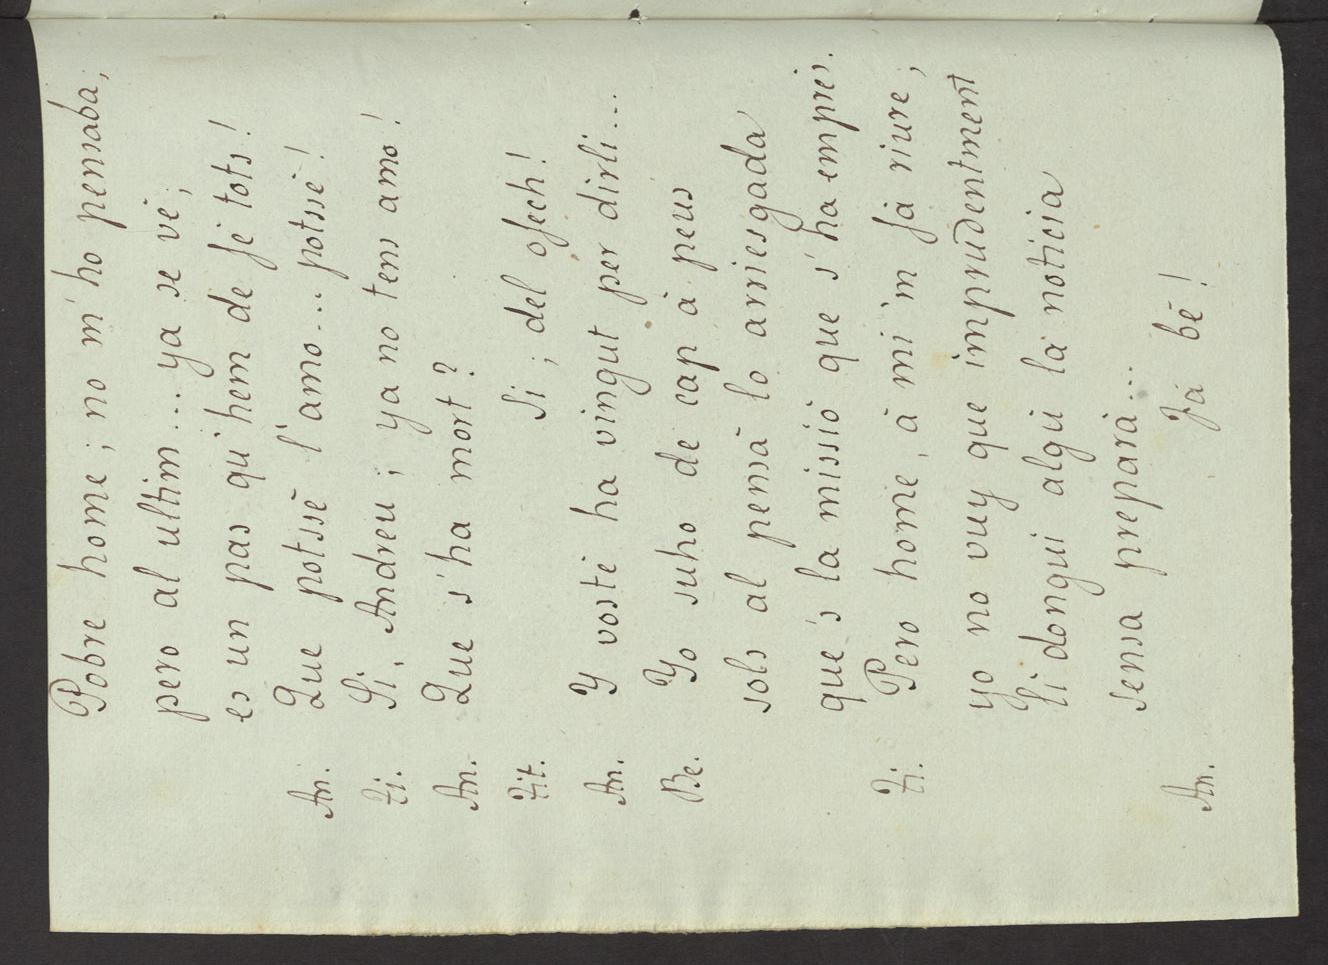 Pobre home; no m'ho pensaba,
pero al ultim... ya se vé;
es un pas qu'hem de fè tots!
An. Que potssè l'amo... potssè!
Ti. Si, Andreu; ya no tens amo!
An. Que s'ha mort?
Tit. Si; del ofech!
An. Y vostè ha vingut per dirli...
Be. Yo suho de cap à peus
sols al pensà lo arriesgada
que's la missió que s'ha empres.
Ti. Pero home, à mi'm fà riure;
yo no vuy que imprudentment
li dongui algú la noticia
sensa preparà...
An. Já bè!